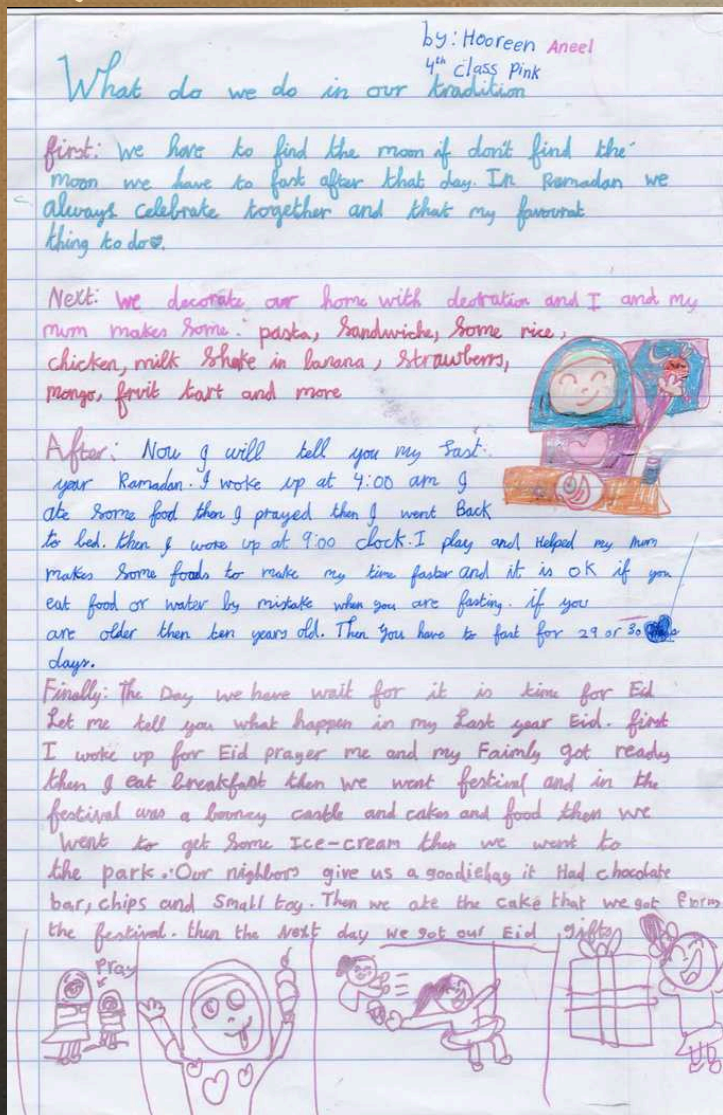 by: Hooreen Aneel
4th class Pink
What do we do in our tradition
first: We have to find the moon if don't find the
moon we have to fast after that day. In Ramadan we
always celebrate together and that my favourat
thing to do.
Next: We decorate our home with deotration and I and my
mum makes some: pasta, Sandwiche, Some rice,
chicken, milk Shake in banana, Strawberrs,
mongo, fruit tart and more
After: Now I will tell you my Last
year Ramadan. I woke up at 4:00 am I
ate some food then I prayed then I went Back
to bed. then I woke up at 9:00 clock. I play and Helped my mum
makes Some foods to make my time faster and it is OK if you
eat food or water by mistake when you are fasting. if you
are older then ten years old. Then you have to fast for 29 or 30
days.
Finally: The Day we have wait for it is time for Eid
Let me tell you what happen in my Last year Eid. first
I woke up for Eid prayer me and my Faimly got ready
then I eat breakfast then we went festival and in the
festival was a bouncy castle and cakes and food then we
Went to get Some Ice-cream then we went to
the park. Our nighbors give us a goodiebag it Had chocolate
bar, chips and Small toy. Then we ate the cake that we got from
the festival. then the Next day we got our Eid gifts
Pray